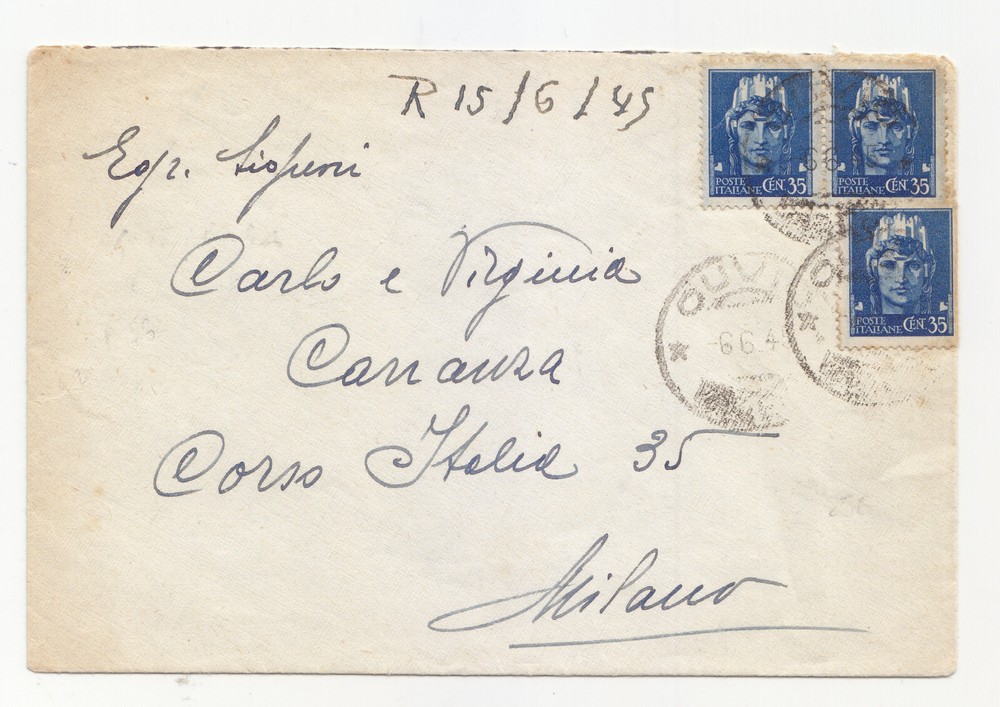 R 15/6/45
Egr. Signori
Carlo e Virginia
Carranza
Corso Italia 35
Milano
POSTE ITALIANE CENT. 35
POSTE ITALIANE CENT. 35
POSTE ITALIANE CENT. 35
6.6.4